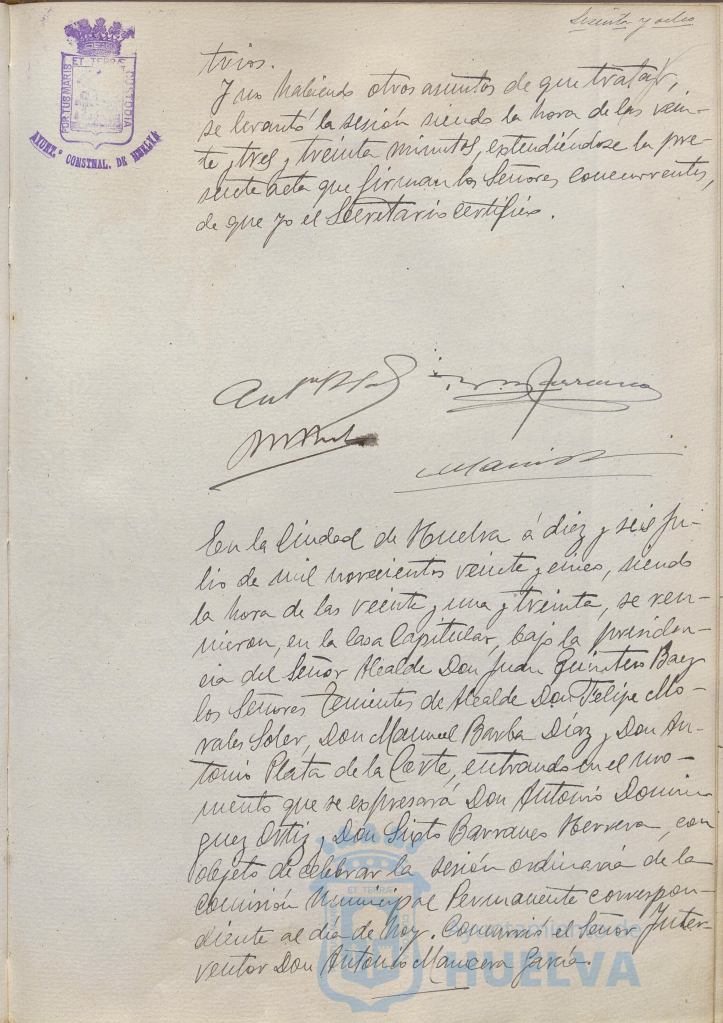 Sesenta y ocho
PORTUS MARIS
ET TERRÆ
CUSTODIA
AYUNT.º CONSTNAL. DE HUELVA
trios.
Y no habiendo otros asuntos de que tratar,
se levantó la sesión siendo la hora de las vein-
te y tres y treinta minutos, extendiéndose la pre-
sente acta que firman los Señores concurrentes,
de que yo el Secretario certifico.
En la Ciudad de Huelva á diez y seis ju-
lio de mil novecientos veinte y cinco, siendo
la hora de las veinte y una y treinta, se reu-
nieron, en la Casa Capitular, bajo la presiden-
cia del Señor Alcalde Don Juan Quintero Baez
los Señores Tenientes de Alcalde Don Felipe Mo-
rales Soler, Don Manuel Barba Díaz y Don An-
tonio Plata de la Corte, entrando en el mo-
mento que se expresará Don Antonio Domin
guez Ortiz y Don Sixto Barranco Herrera, con
objeto de celebrar la sesión ordinaria de la
Comisión Municipal Permanente correspon-
diente al dia de hoy. Concurrió el Señor Inter-
ventor Don Antonio Mancera García.
Ayuntamiento de
HUELVA